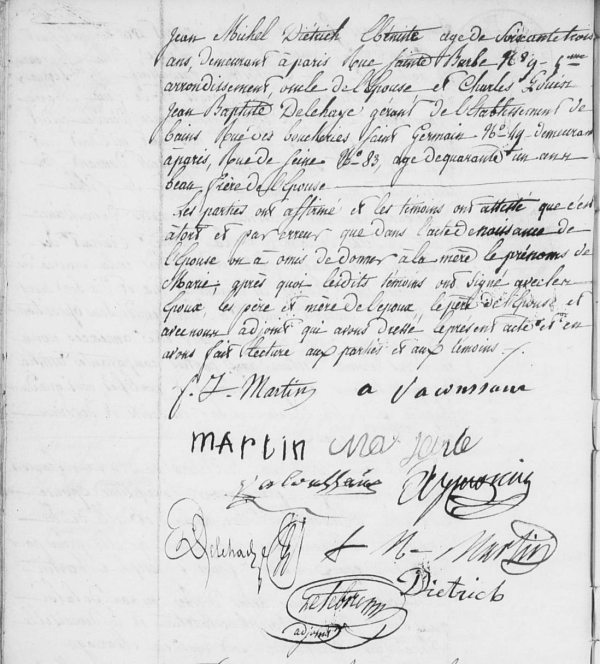 Jean Michel Dietrich Ebéniste age de Soixante trois
ans, demeurant à paris Rue Sainte Barbe No 9 - 5me
arrondissement, oncle de l'épouse et Charles Louis
Jean Baptiste Delehaye gérant de l'Etablissement de
bains Rue des boucheries Saint Germain No 49 demeurant
à paris, Rue de Seine No 83, age de quarante un ans
beau frère de l'épouse
Les parties ont affirmé et les témoins ont attesté que c'est
à tort et par erreur que dans l'acte de naissance de
l'épouse on à omis de donner à la mère le prénoms de
Marie, après quoi lesdits témoins ont signé avec les
époux, les père et mère de l'époux, le père de l'épouse et
avec nous adjoint qui avons dressé le present acte et en
avons fait lecture aux parties et aux témoins.
f. J. Martin a Vacoussain
MARTIN
Delehaye N Martin
Dietrich
Lefebvre
adjoint